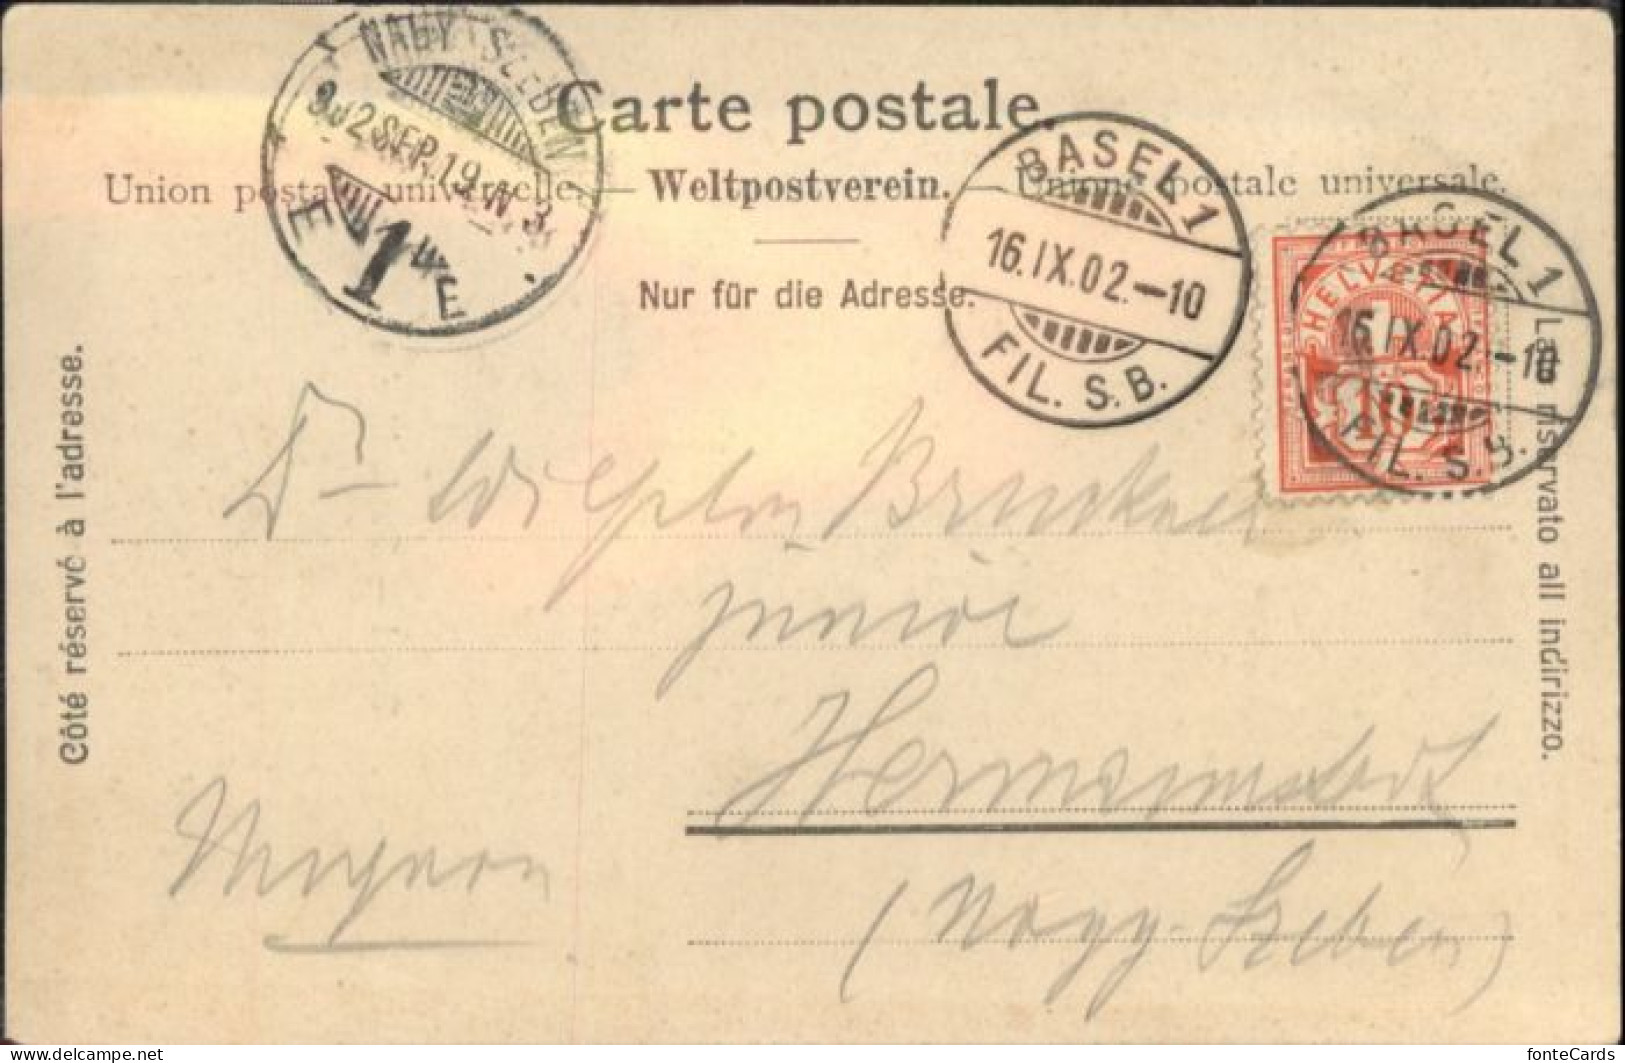 Carte postale.
Union postale universelle. — Weltpostverein. — Unione postale universale.
Nur für die Adresse.
Côté réservé à l'adresse.
Lato riservato all indirizzo.
NAGY SZEBEN
902 SEP. 19. N. 3
1
BASEL 1
16.IX.02.–10
FIL. S.B.
BASEL 1
16.IX.02.–10
FIL. S.B.
HELVETIA
10
Dr Wilhelm Bruckner
junior
Hermannstadt
(Nagy-Szeben)
Ungarn
fonteCards
www.delcampe.net